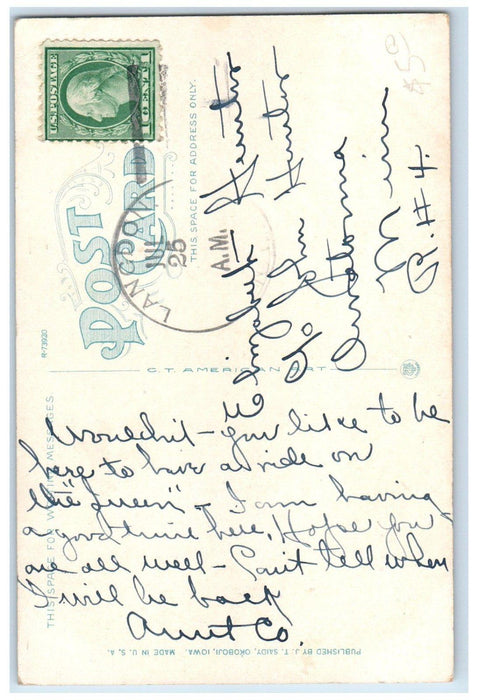 $5.00
U.S. POSTAGE
1 CENT 1
POST
CARD
THIS SPACE FOR ADDRESS ONLY.
LANGDON
JUL
25
A.M.
Elizabeth Hunter
c/o Jim Hunter
Owatonna
Minn
R.#4.
R-73920
C.T. AMERICAN ART
THIS SPACE FOR WRITING MESSAGES
Wouldn't you like to be
here to have a ride on
the "Queen" - I am having
a good time here. Hope you
are all well - Can't tell when
I will be back
Aunt Co.
PUBLISHED BY J. T. SAIDY, OKOBOJI, IOWA. MADE IN U. S. A.